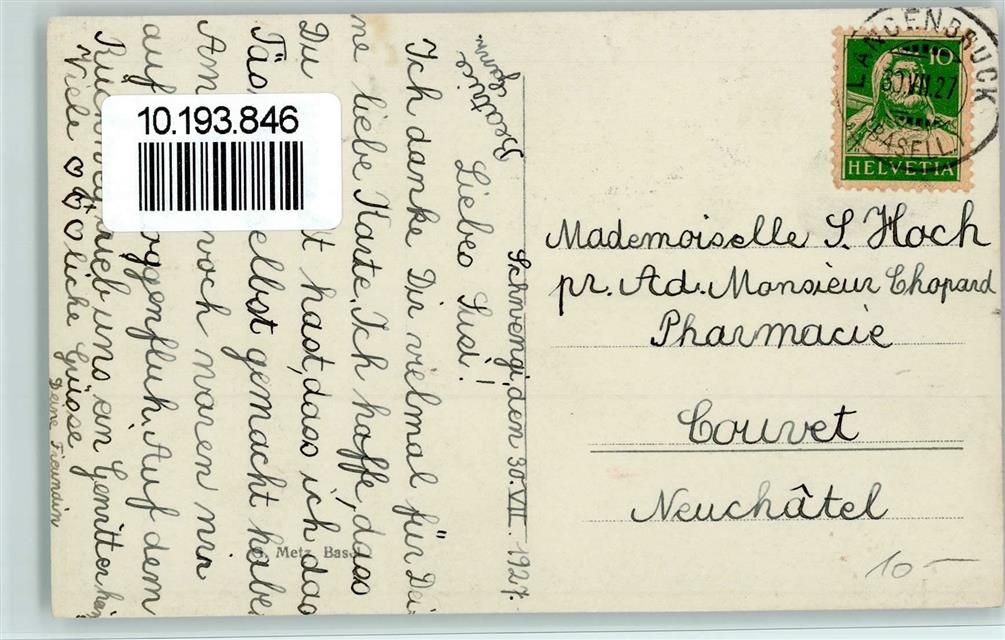 Schwengi, den 30. VII. 1927.
Liebes Susi!
Ich danke Dir vielmal für Dei
ne liebe Karte. Ich hoffe, dass
Du hast, dass ich das
Täs elbst gemacht habe.
Am woch waren wir
auf oggenfluh. Auf dem
uns ein Gewitter
Viele liche Grüsse
Deine Freundin
Beatrice
10.193.846
Metz, Basel
LANGENBRUCK
30.VII.27
(BASELL
10
HELVETIA
Mademoiselle S. Hoch
pr. Ad. Monsieur Chopard
Pharmacie
Couvet
Neuchâtel
10-